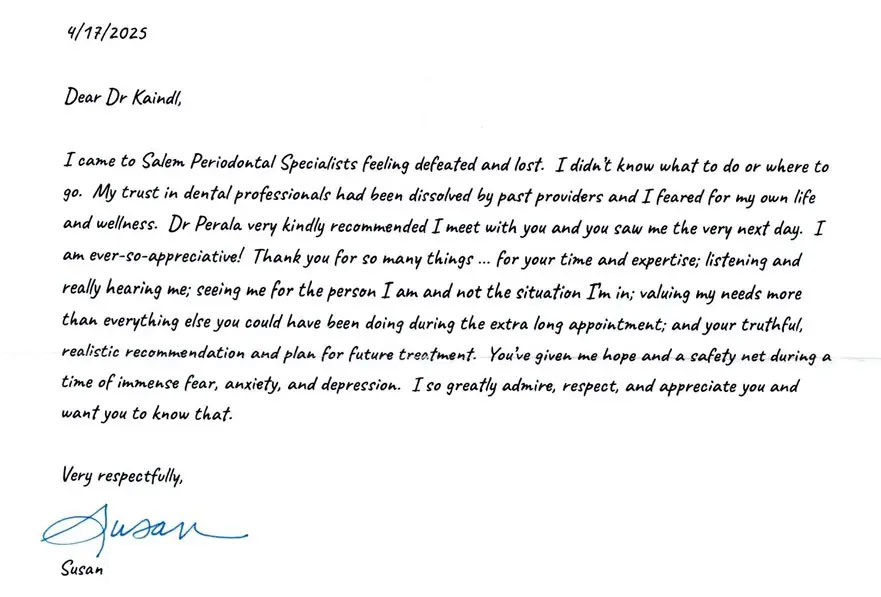 4/17/2025
Dear Dr Kaindl,
I came to Salem Periodontal Specialists feeling defeated and lost.  I didn't know what to do or where to
go.  My trust in dental professionals had been dissolved by past providers and I feared for my own life
and wellness.  Dr Perala very kindly recommended I meet with you and you saw me the very next day.  I
am ever-so-appreciative!  Thank you for so many things ... for your time and expertise; listening and
really hearing me; seeing me for the person I am and not the situation I'm in; valuing my needs more
than everything else you could have been doing during the extra long appointment; and your truthful,
realistic recommendation and plan for future treatment.  You've given me hope and a safety net during a
time of immense fear, anxiety, and depression.  I so greatly admire, respect, and appreciate you and
want you to know that.
Very respectfully,
Susan
Susan